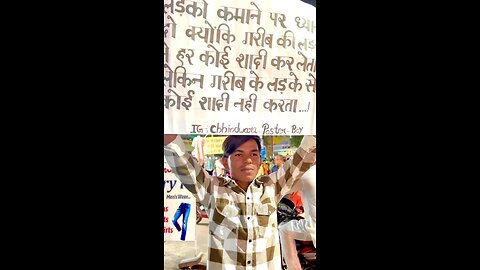 लड़को कमाने पर ध्यान
दो क्योंकि गरीब की लड़
से हर कोई शादी कर लेता
लेकिन गरीब के लड़के से
कोई शादी नही करता...!
IG: Chhindwara Poster Boy
Men's Wear